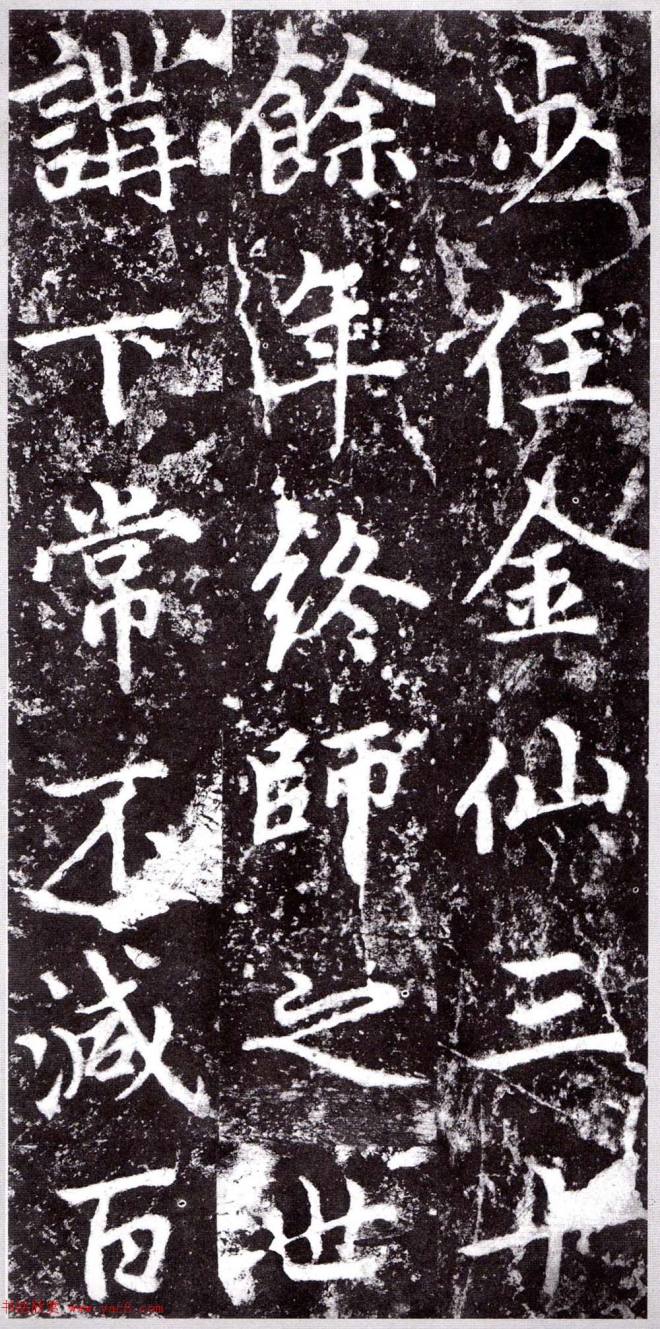 步住金仙三十
餘年終師之世
講下常不減百
www.yac8.com